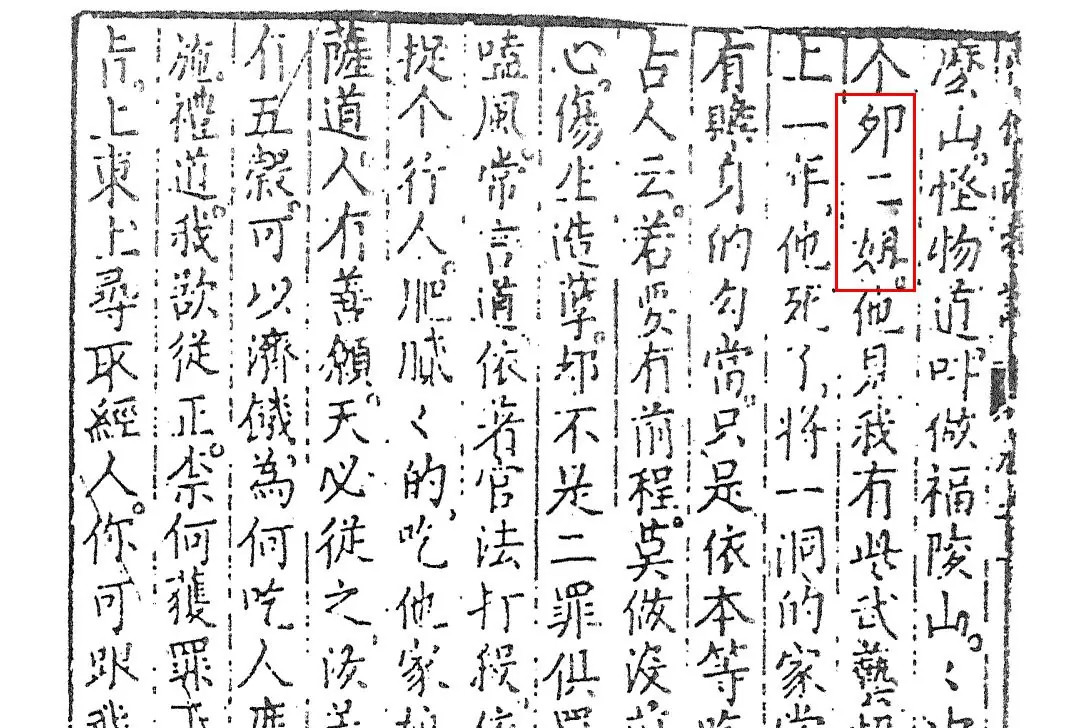 麼山怪物道叫做福陵山〻
个卯二姐他見我有些武藝
上一年他死了將一洞的家
有贍身的勾當只是依本等
古人云若要有前程莫做没
心傷生造孽却不是二罪俱
嗑風常言道依着官法打殺
捉个行人肥膩〻的吃他家
薩道人有善願天必從之汝
有五穀可以濟饑為何吃人
施禮道我欲從正奈何獲罪
上東土尋取經人你可跟我